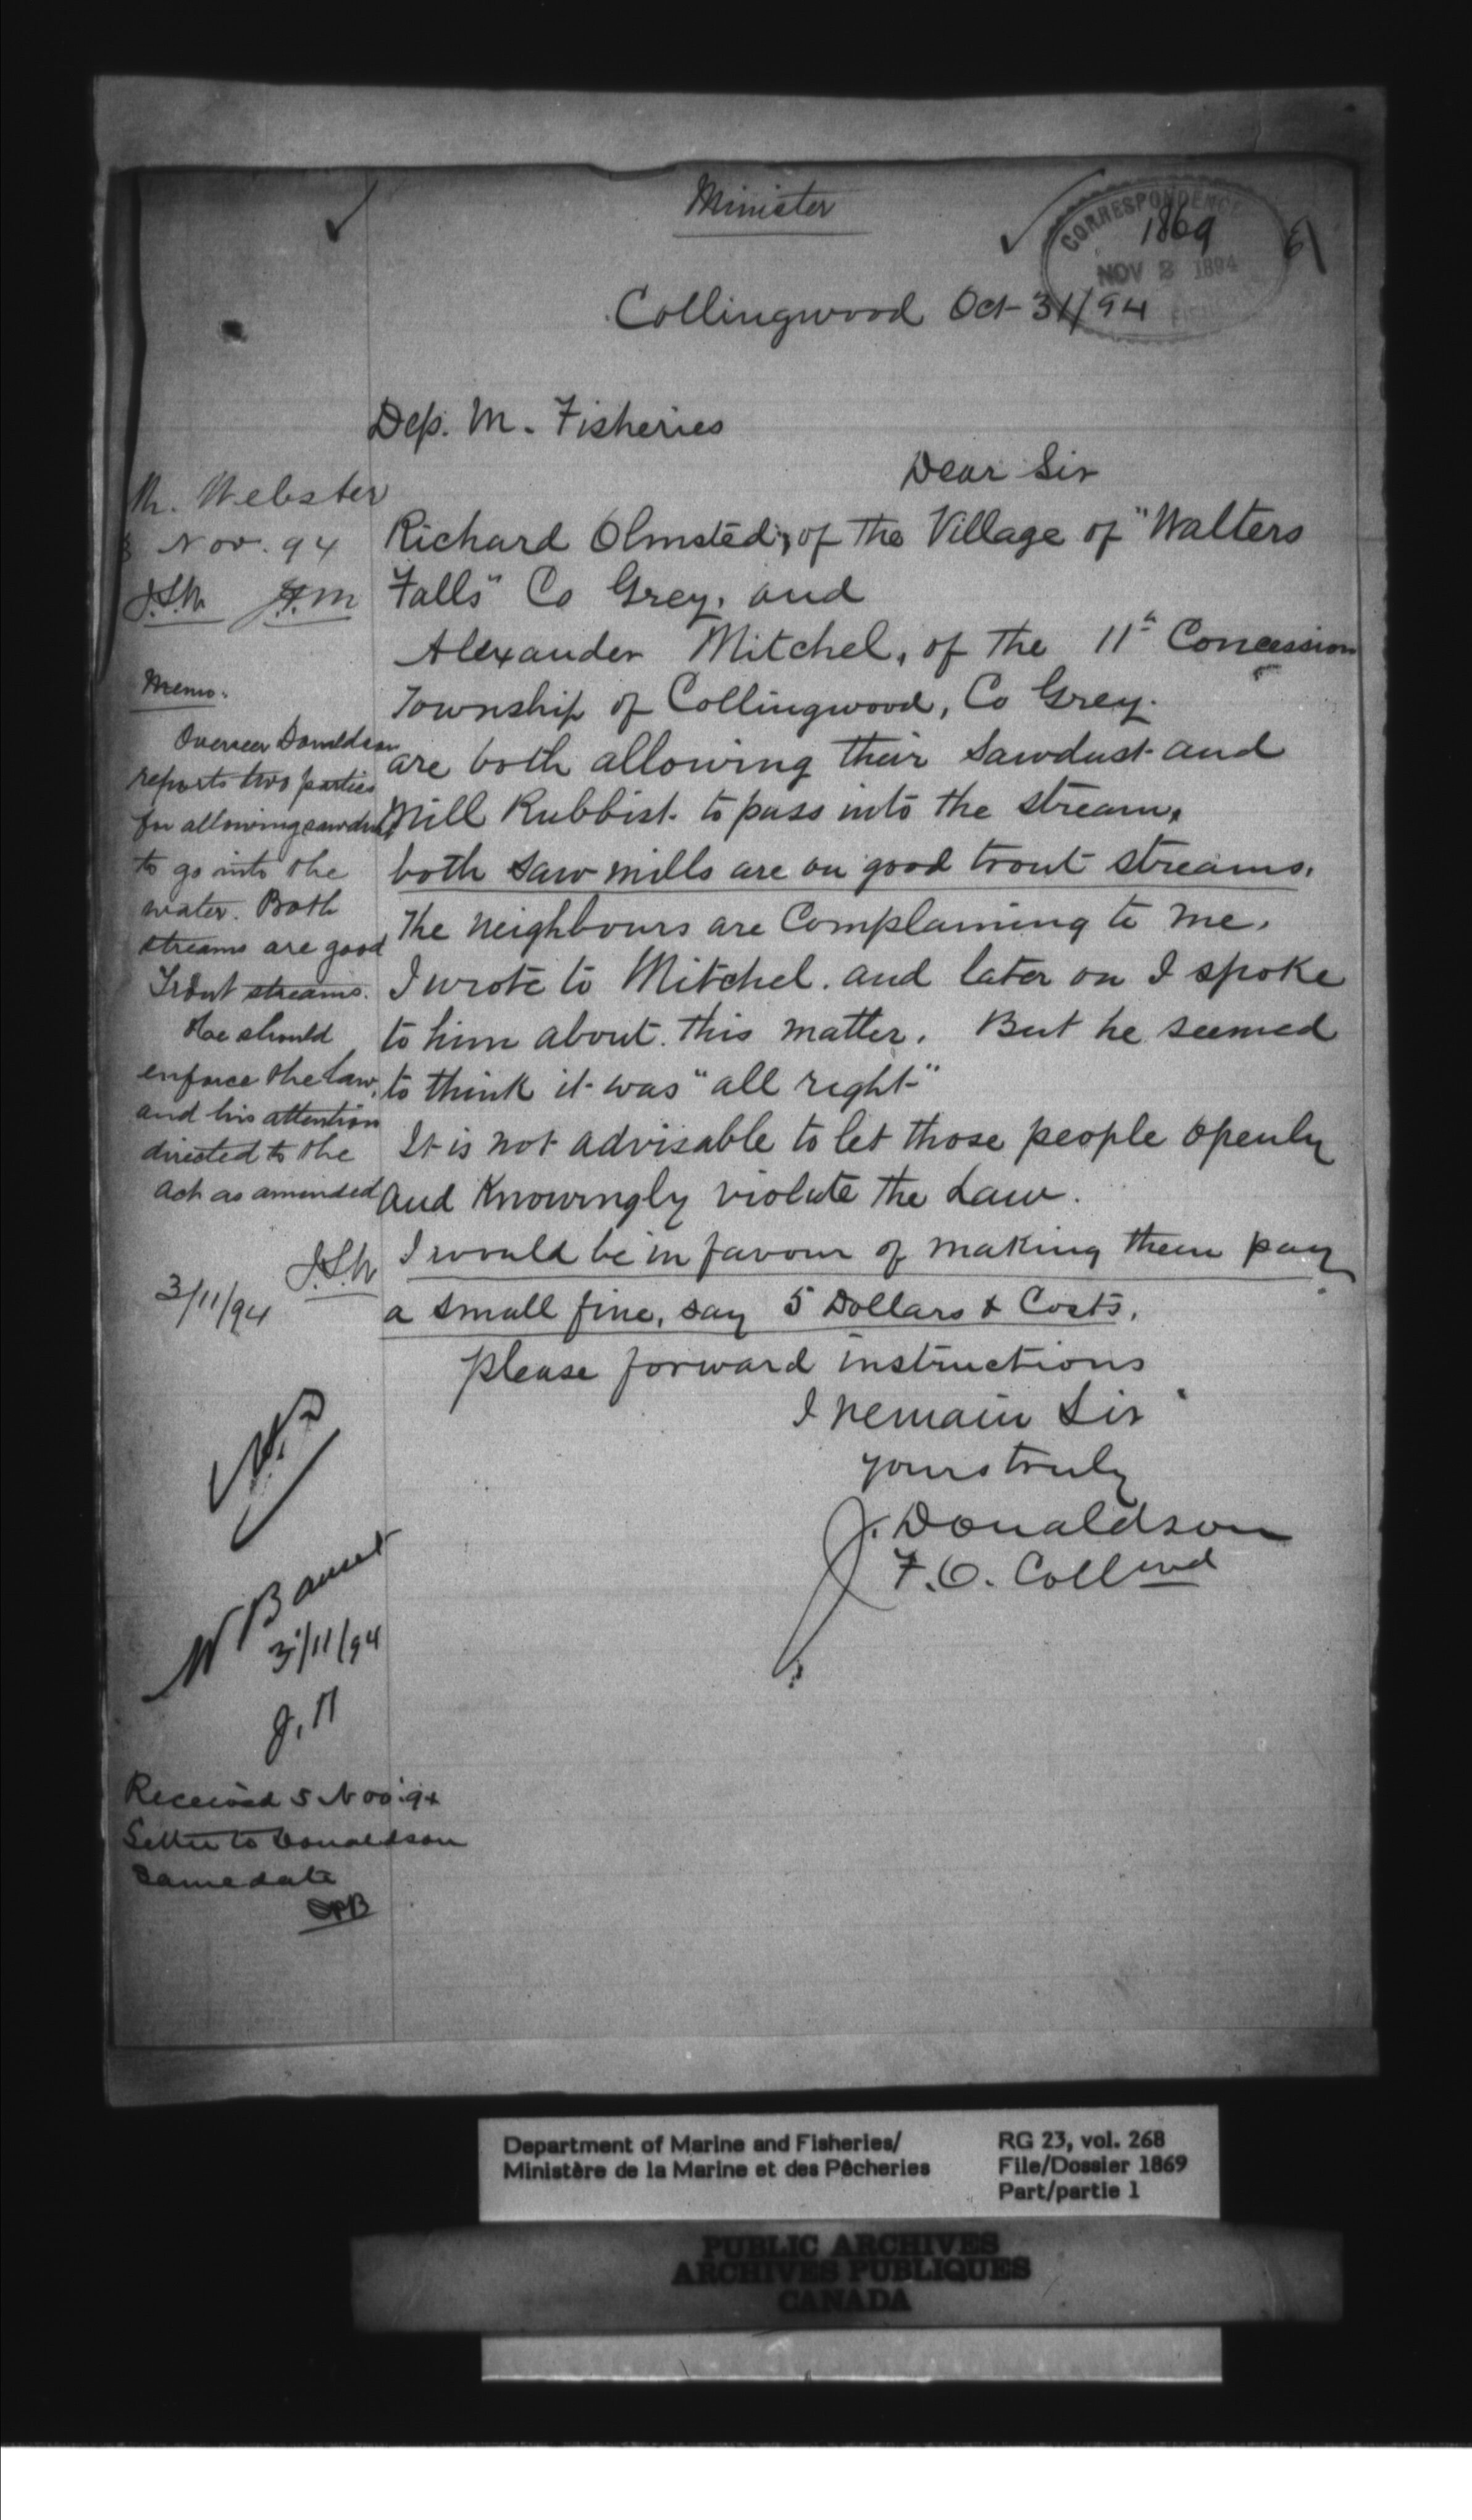 Minister
CORRESPONDENCE
1869
NOV 2 1894
Collingwood Oct 31/94
Dep. M. Fisheries
Dear Sir
Richard Olmsted, of the Village of "Walters
Falls" Co Grey, and
Alexander Mitchel, of The 11th Concession
Township of Collingwood, Co Grey.
are both allowing their Sawdust and
Mill Rubbist to pass into the stream,
both Saw mills are on good trout streams.
The Neighbours are Complaining to me.
I wrote to Mitchel. and later on I spoke
to him about this matter. But he seemed
to think it was "all right"
It is not advisable to let those people openly
and Knowingly violate the Law.
I would be in favour of making them pay
a small fine, say 5 Dollars & Costs.
please forward instructions
I remain Sir
yours truly
J. Donaldson
F.O. Collwd
Webster
Nov. 94
Memo.
Overseer Donaldson
reports two parties
for allowing sawdust
to go into the
water. Both
streams are good
Trout streams.
He should
enforce the law,
and his attention
directed to the
act as amended
3/11/94
3/11/94
Received 5 Nov. 94
Letter to Donaldson
same date
Department of Marine and Fisheries/
Ministère de la Marine et des Pêcheries
RG 23, vol. 268
File/Dossier 1869
Part/partie 1
PUBLIC ARCHIVES
ARCHIVES PUBLIQUES
CANADA